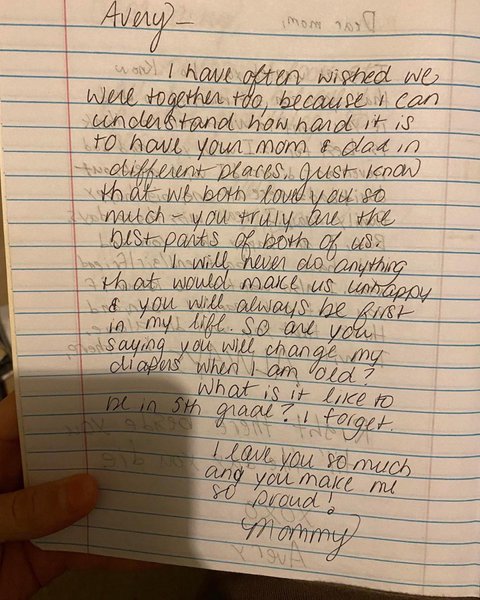 Avery –
I have often wished we
were together too, because i can
understand how hard it is
to have your mom & dad in
different places. Just know
that we both love you so
much – you truly are the
best parts of both of us.
I will never do anything
that would make us unhappy
& you will always be first
in my life. So are you
saying you will change my
diapers when I am old?
What is it like to
be in 5th grade? I forget.
I love you so much
and you make me
so proud!
Mommy
Dear mom,
Avery